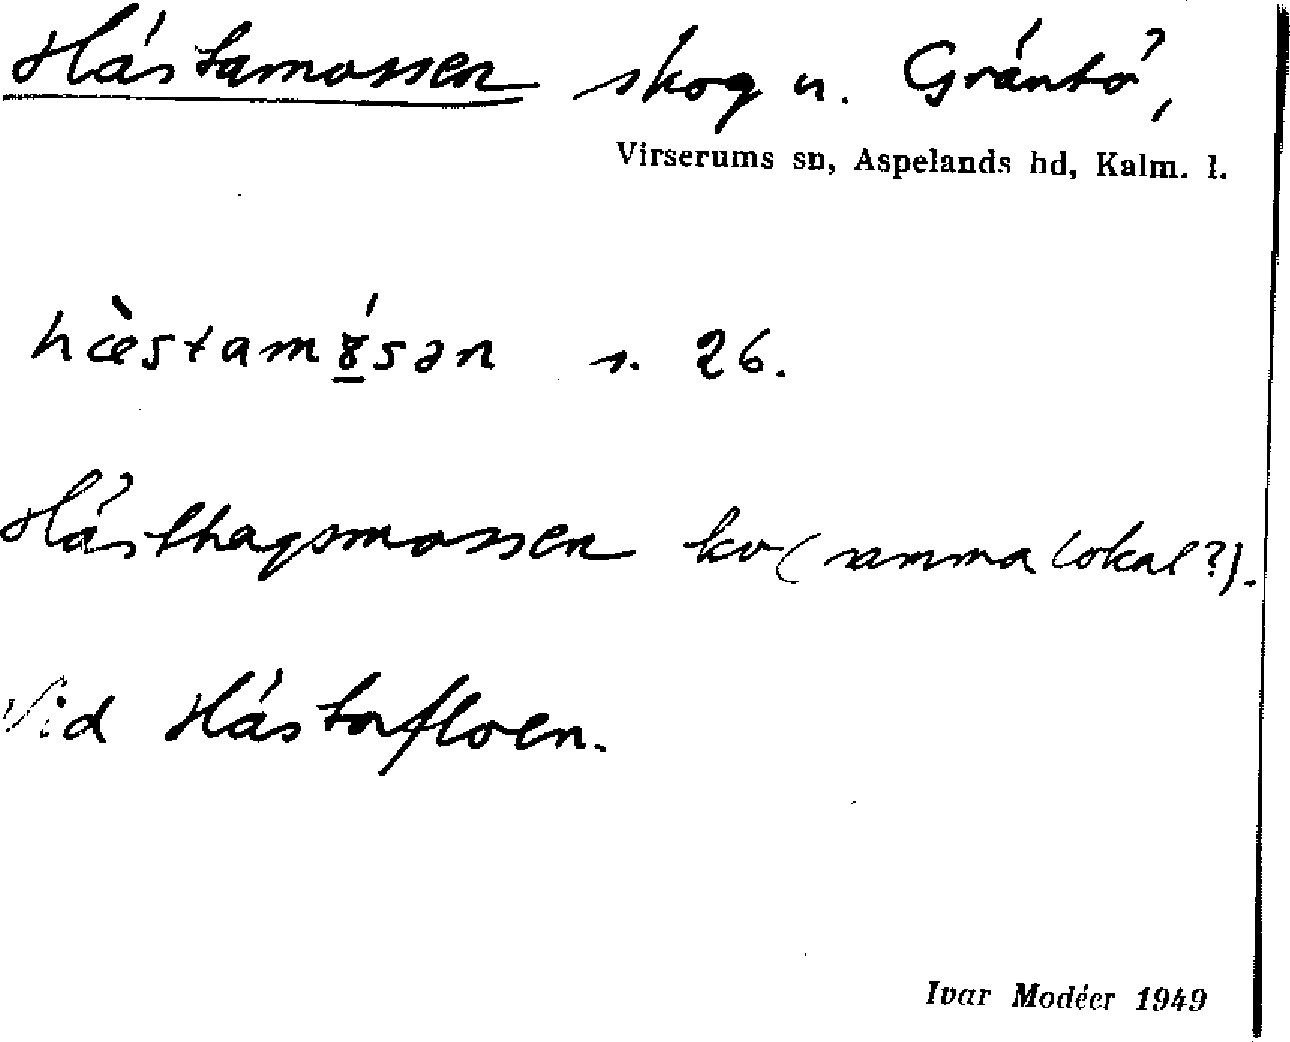 Hästamossen skog u. Gräntö,
Virserums sn, Aspelands hd, Kalm. l.
hæ̀stamɤ̱́sən s. 26.
Hästhagsmossen kv (samma lokal?).
Vid Hästafloen.
Ivar Modéer 1949